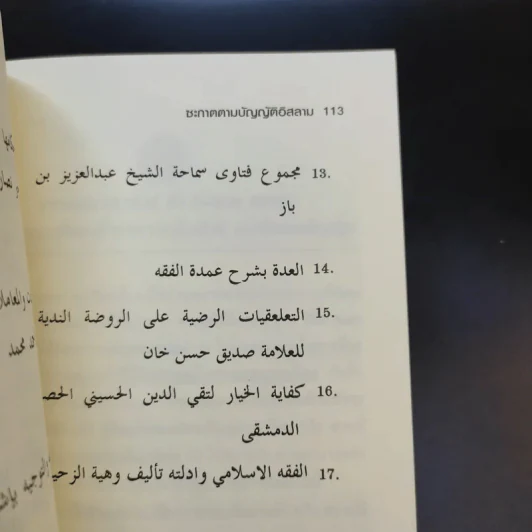 ซะกาตตามบัญญัติอิสลาม 113
13. مجموع فتاوى سماحة الشيخ عبدالعزيز بن
باز
14. العدة بشرح عمدة الفقه
15. التعلقيات الرضية على الروضة الندية
للعلامة صديق حسن خان
16. كفاية الخيار لتقي الدين الحسيني الحص
الدمشقى
17. الفقه الاسلامي وادلته تأليف وهبة الزحي